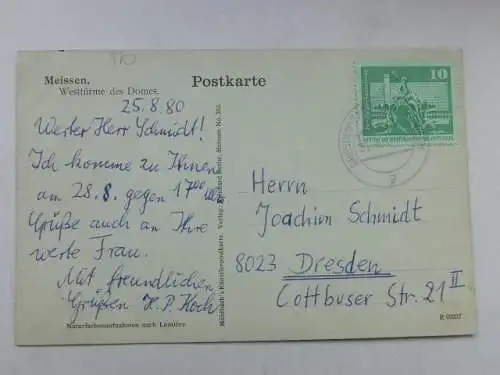 Meissen.
Westtürme des Domes.
Postkarte
25.8.80
Werter Herr Schmidt!
Ich komme zu Ihnen
am 28.8. gegen 17 00 Uhr
Grüße auch an Ihre
werte Frau.
Mit freundlichen
Grüßen H. P. Koch
Naturfarbenaufnahmen nach Lumière
10
Herrn
Joachim Schmidt
8023 Dresden
Cottbuser Str. 21 II